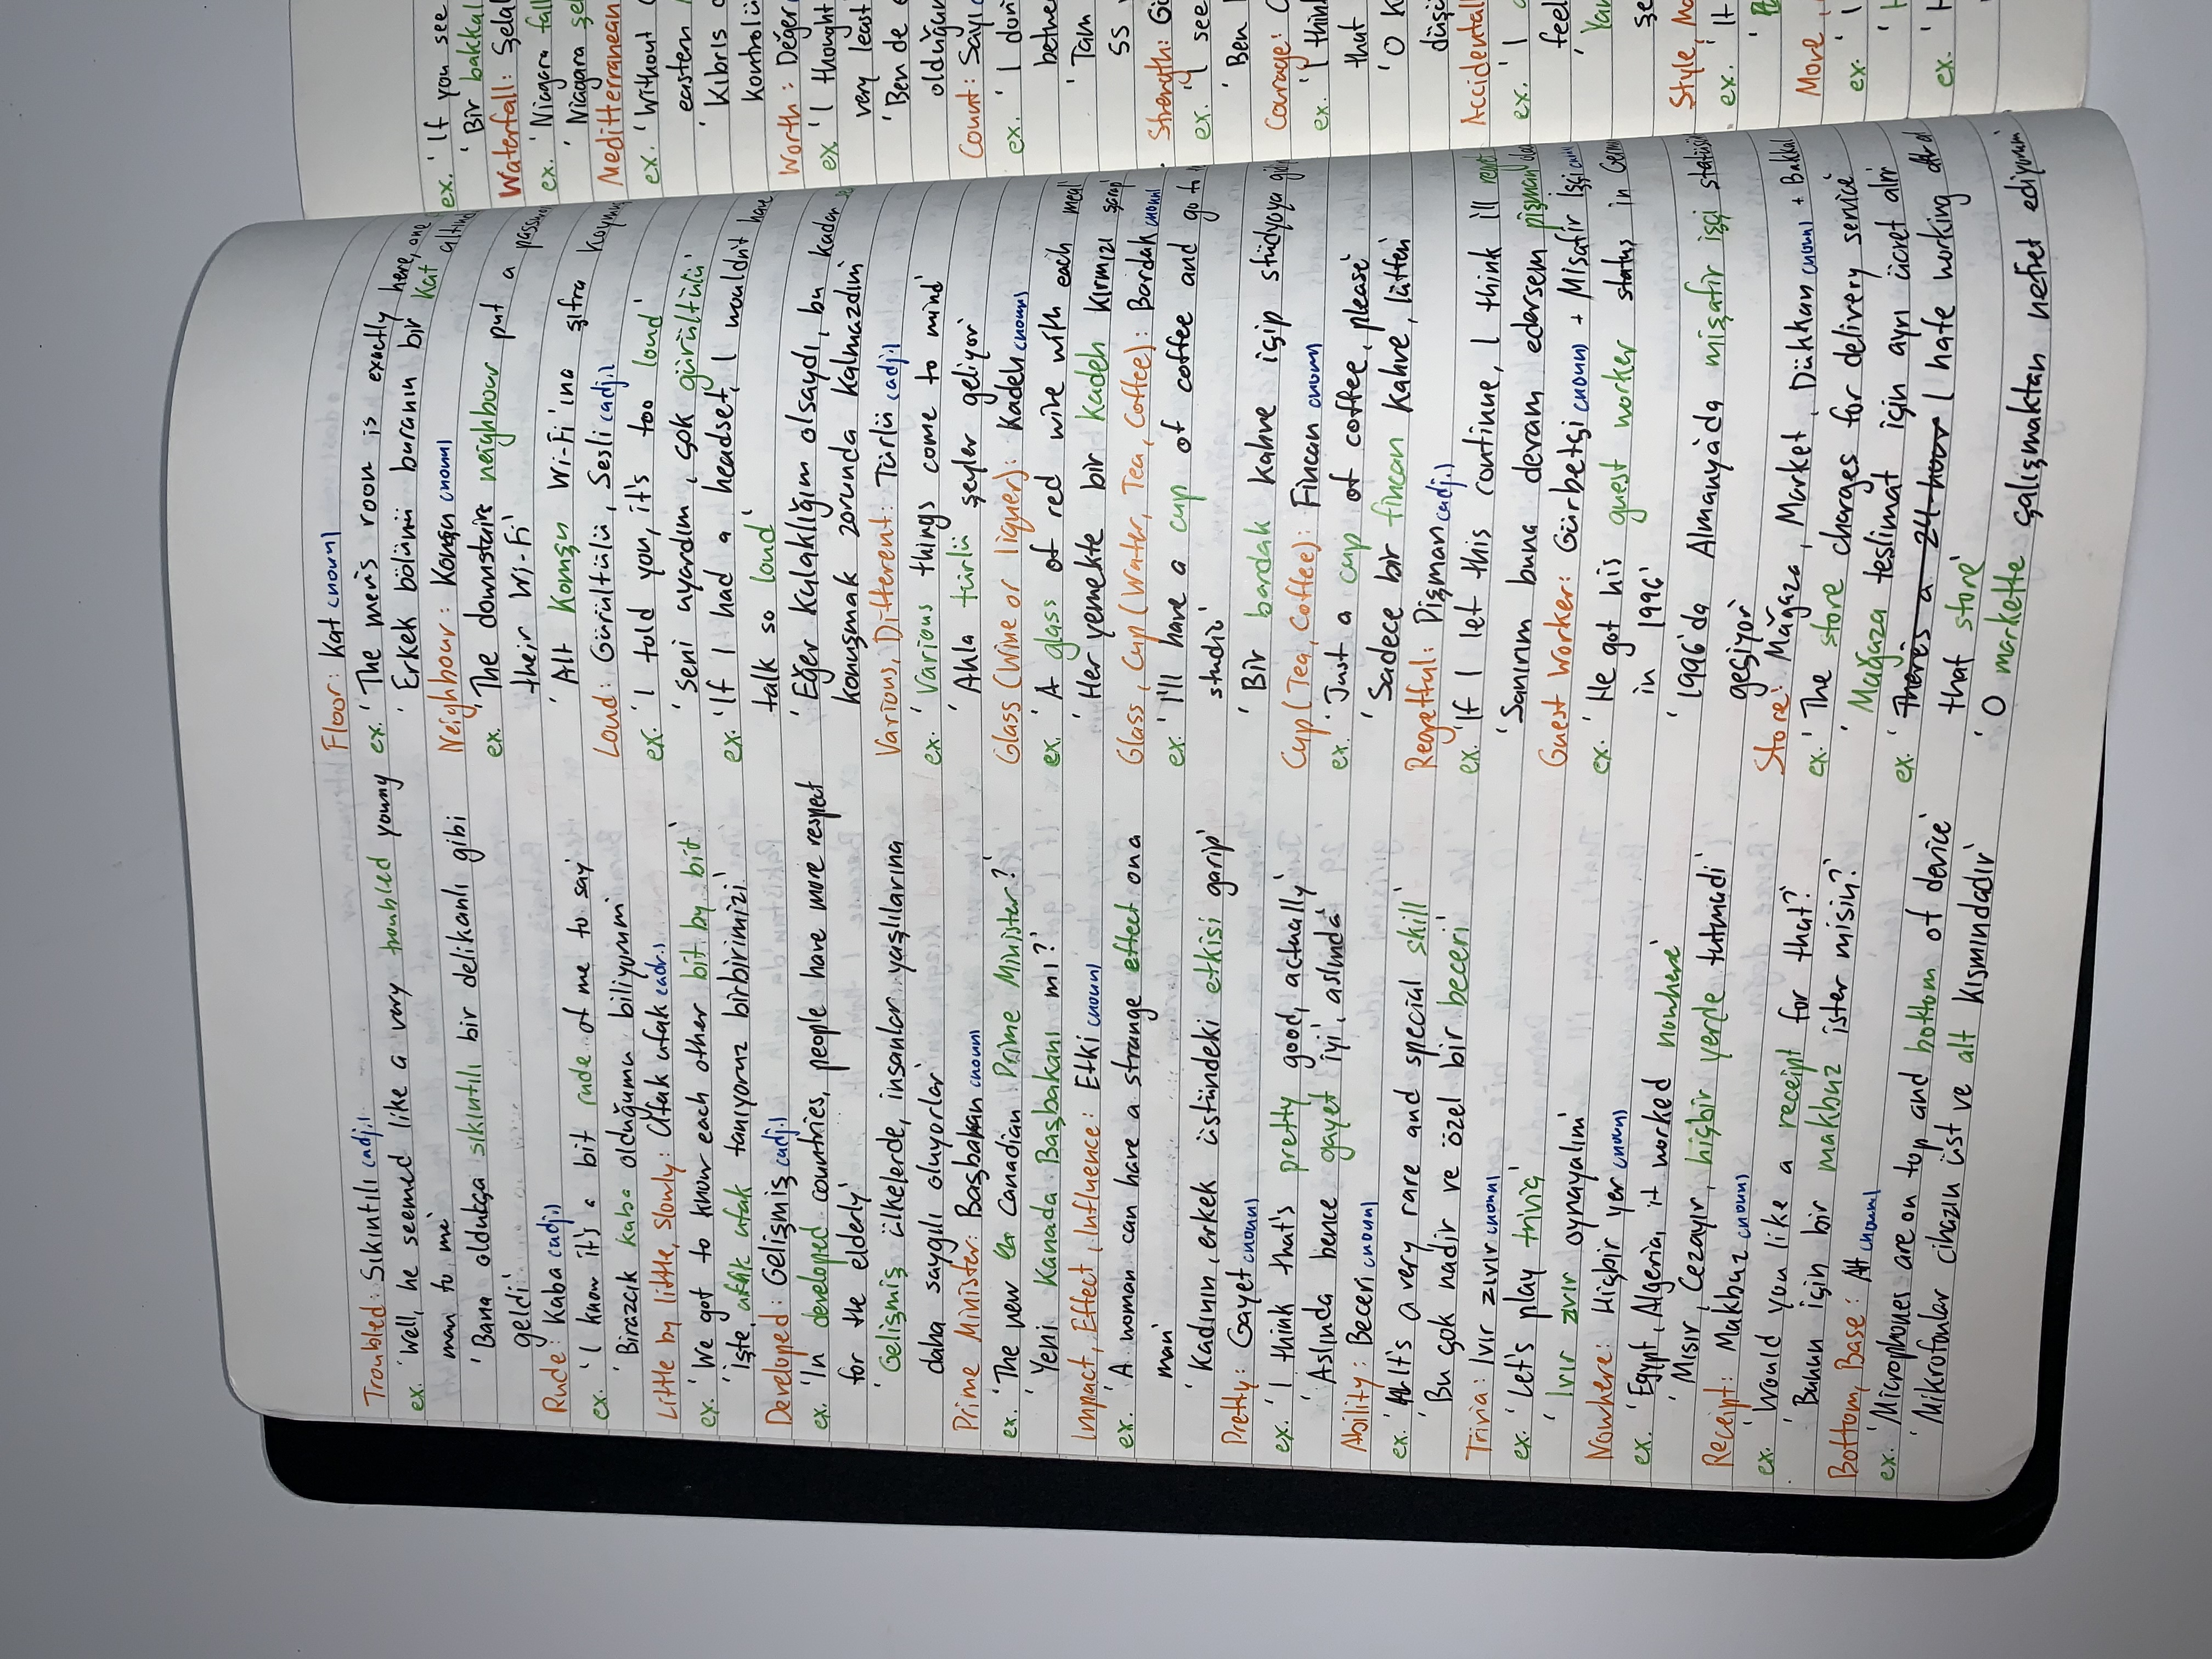 Troubled: Sıkıntılı (adj.)
ex. 'Well, he seemed like a very troubled young
man to me'
'Bana oldukça sıkıntılı bir delikanlı gibi
geldi'
Rude: Kaba (adj.)
ex. 'I know it's a bit rude of me to say'
'Birazcık kaba olduğumu biliyorum'
Little by little, Slowly: Ufak ufak (adv.)
ex. 'We got to know each other bit by bit'
'İşte, ufak ufak tanıyoruz birbirimizi'
Developed: Gelişmiş (adj.)
ex. 'In developed countries, people have more respect
for the elderly'
'Gelişmiş ülkelerde, insanlar yaşlılarına
daha saygılı oluyorlar'
Prime Minister: Başbakan (noun)
ex. 'The new Canadian Prime Minister?'
'Yeni Kanada Başbakanı mı?'
Impact, Effect, Influence: Etki (noun)
ex. 'A woman can have a strange effect on a
man'
'Kadının, erkek üstündeki etkisi garip'
Pretty: Gayet (noun)
ex. 'I think that's pretty good, actually'
'Aslında bence gayet iyi, aslında'
Ability: Beceri (noun)
ex. 'It's a very rare and special skill'
'Bu çok nadir ve özel bir beceri'
Trivia: Ivır zıvır (noun)
ex. 'Let's play trivia'
'Ivır zıvır oynayalım'
Nowhere: Hiçbir yer (noun)
ex. 'Egypt, Algeria, it worked nowhere'
'Mısır, Cezayir, hiçbir yerde tutmadı'
Receipt: Makbuz (noun)
ex. 'Would you like a receipt for that?'
'Bunun için bir makbuz ister misin?'
Bottom, Base: Alt (noun)
ex. 'Microphones are on top and bottom of device'
'Mikrofonlar cihazın üst ve alt kısmındadır'
Floor: Kat (noun)
ex. 'The men's room is exactly here, one
'Erkek bölümü buranın bir kat altında
Neighbour: Komşu (noun)
ex. 'The downstairs neighbour put a
their Wi-Fi'
'Alt komşu Wi-Fi'ına şifra koymuş
Loud: Gürültülü, Sesli (adj.)
ex. 'I told you, it's too loud'
'Seni uyardım, çok gürültülü'
ex. 'If I had a headset, I wouldn't have
talk so loud'
'Eğer kulaklığım olsaydı, bu kadar
konuşmak zorunda kalmazdım
Various, Different: Türlü (adj.)
ex. 'Various things come to mind'
'Akla türlü şeyler geliyor'
Glass (Wine or liquer): Kadeh (noun)
ex. 'A glass of red wine with each meal'
'Her yemekte bir kadeh kırmızı şarap
Glass, Cup (Water, Tea, Coffee): Bardak (noun)
ex. 'I'll have a cup of coffee and go to
studio'
'Bir bardak kahve içip stüdyoya
Cup (Tea, Coffee): Fincan (noun)
ex. 'Just a cup of coffee, please'
'Sadece bir fincan kahve, lütfen
Regretful: Pişman (adj.)
ex. 'If I let this continue, I think I'll regret
'Sanırım buna devam edersem pişman
Guest Worker: Gurbetçi (noun) + Misafir İşçi (noun)
ex. 'He got his guest worker status in
in 1996'
'1996'da Almanya'da misafir işçi
geçiyor'
Store: Mağaza, Market, Dükkan (noun) + Bakkal
ex. 'The store charges for delivery service'
'Mağaza teslimat için ayrı ücret alır
ex. 'There's a 24 hour I hate working at
that store'
'O markette çalışmaktan nefret ediyorum
ex. 'If you see
'Bir bakkal
Waterfall: Şelal
ex. 'Niagara fall
'Niagara şel
Meditterranean
ex. 'Without
eastern
'Kıbrıs
kontrolü
Worth: Değer
ex 'I thought
very least
'Ben de
olduğun
Count: Sayı
ex. 'I don'
betwe
'Tam
SS
Strength: Gü
ex. 'I see
'Ben
Courage: C
ex. 'I think
that
'O K
düşü
Accidentall
ex. 'I
feel
'Yan
şe
Style, Mo
ex. 'It
Move
ex. 'I
ex. 'I